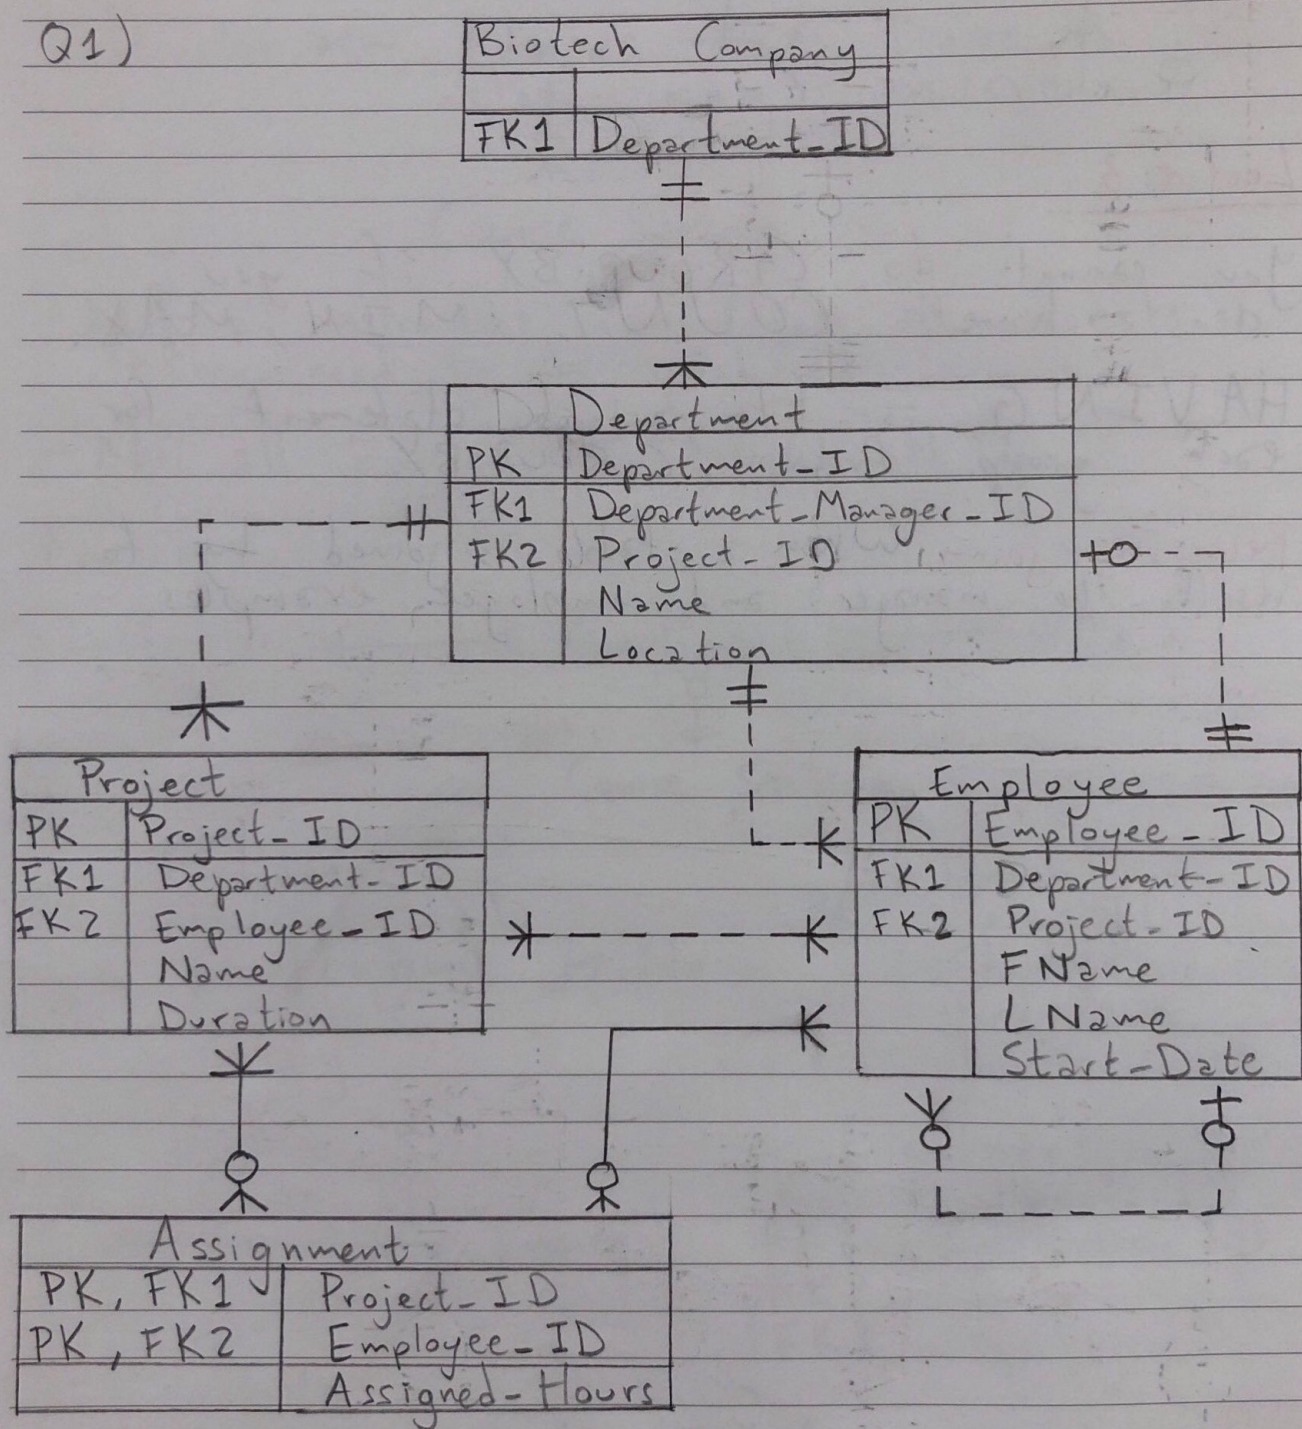 Q1)
Biotech Company
FK1 Department_ID
Department
PK Department_ID
FK1 Department_Manager_ID
FK2 Project_ID
Name
Location
Project
PK Project_ID
FK1 Department_ID
FK2 Employee_ID
Name
Duration
Employee
PK Employee_ID
FK1 Department_ID
FK2 Project_ID
FName
LName
Start_Date
Assignment
PK, FK1 Project_ID
PK, FK2 Employee_ID
Assigned_Hours